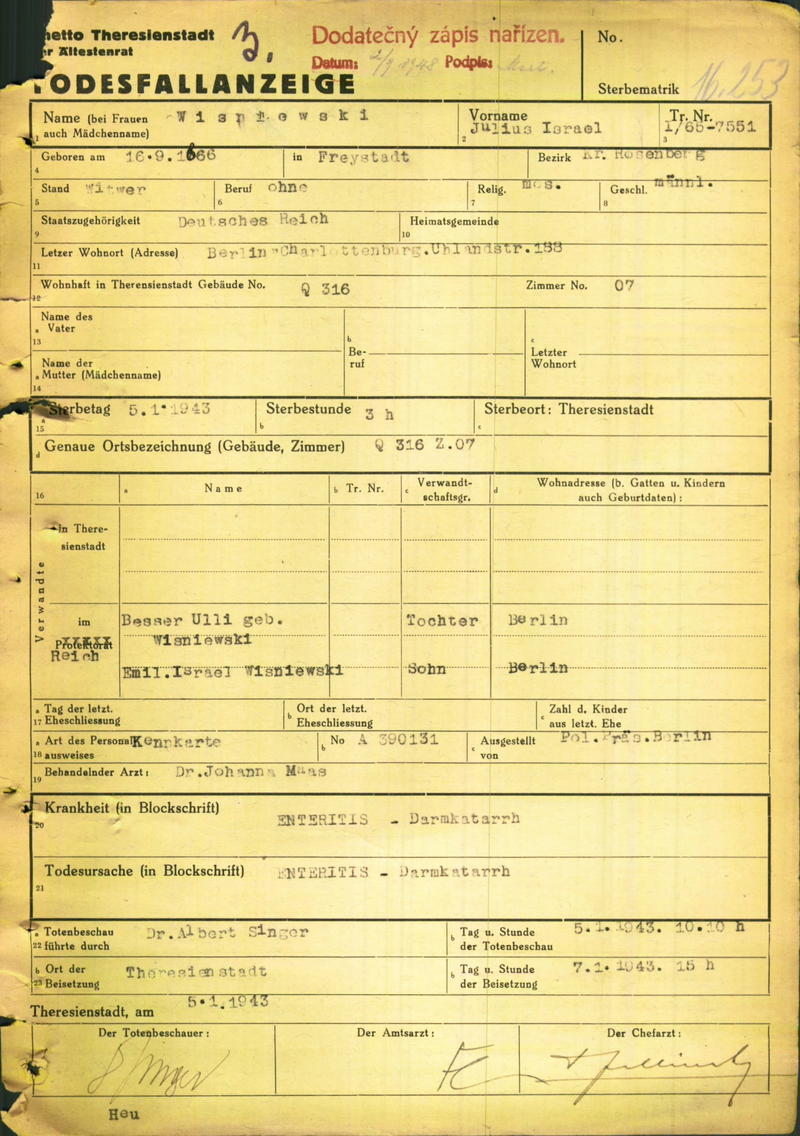 hetto Theresienstadt
r Ältestenrat
TODESFALLANZEIGE
Dodatečný zápis nařízen.
Datum: 1948 Podpis:
No.
Sterbematrik 16.253
Name (bei Frauen auch Mädchenname) Wisniewski
Vorname Julius Israel
Tr. Nr. I/65-7551
1 2 3
Geboren am 16.9.1866 in Freystadt Bezirk Kr. Rosenberg
4
Stand Witwer Beruf ohne Relig. mos. Geschl. männl.
5 6 7 8
Staatszugehörigkeit Deutsches Reich Heimatsgemeinde
9 10
Letzer Wohnort (Adresse) Berlin-Charlottenburg.Uhlandstr.188
11
Wohnhaft in Therensienstadt Gebäude No. Q 316 Zimmer No. 07
12
Name des
a Vater
13
Name der
a Mutter (Mädchenname)
14
b Be-
ruf
c Letzter
Wohnort
Sterbetag 5.1.1943 Sterbestunde 3 h Sterbeort: Theresienstadt
15 a b c
d Genaue Ortsbezeichnung (Gebäude, Zimmer) Q 316 Z.07
16 a Name b Tr. Nr. c Verwandt-
schaftsgr. d Wohnadresse (b. Gatten u. Kindern
auch Geburtdaten):
Verwandte
In There-
sienstadt
im
Protektorat
Reich
Besser Ulli geb. Tochter Berlin
Wisniewski
Emil.Israel Wisniewski Sohn Berlin
a Tag der letzt.
17 Eheschliessung
b Ort der letzt.
Eheschliessung
c Zahl d. Kinder
aus letzt. Ehe
a Art des Personal- Kennkarte b No A 390131 c Ausgestellt Pol.Präs.Berlin
18 ausweises von
19 Behandelnder Arzt: Dr.Johanna Maas
Krankheit (in Blockschrift)
20 ENTERITIS - Darmkatarrh
Todesursache (in Blockschrift) ENTERITIS - Darmkatarrh
21
a Totenbeschau Dr.Albert Singer b Tag u. Stunde 5.1.1943. 10.10 h
22 führte durch der Totenbeschau
b Ort der Theresienstadt b Tag u. Stunde 7.1.1943. 15 h
23 Beisetzung der Beisetzung
Theresienstadt, am 5.1.1943
Der Totenbeschauer: Der Amtsarzt: Der Chefarzt:
Singer
Heu